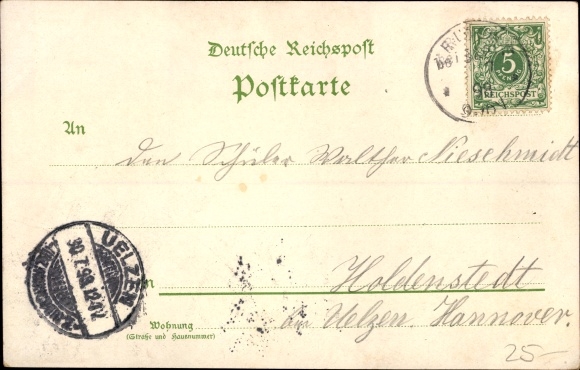 Deutsche Reichspost
Postkarte
5
REICHSPOST
An
Den Schüler Walther Nieschmidt
UELZEN
30.7.98.
in
Holdenstedt
bei Uelzen Hannover.
Wohnung
(Straße und Hausnummer)
25-